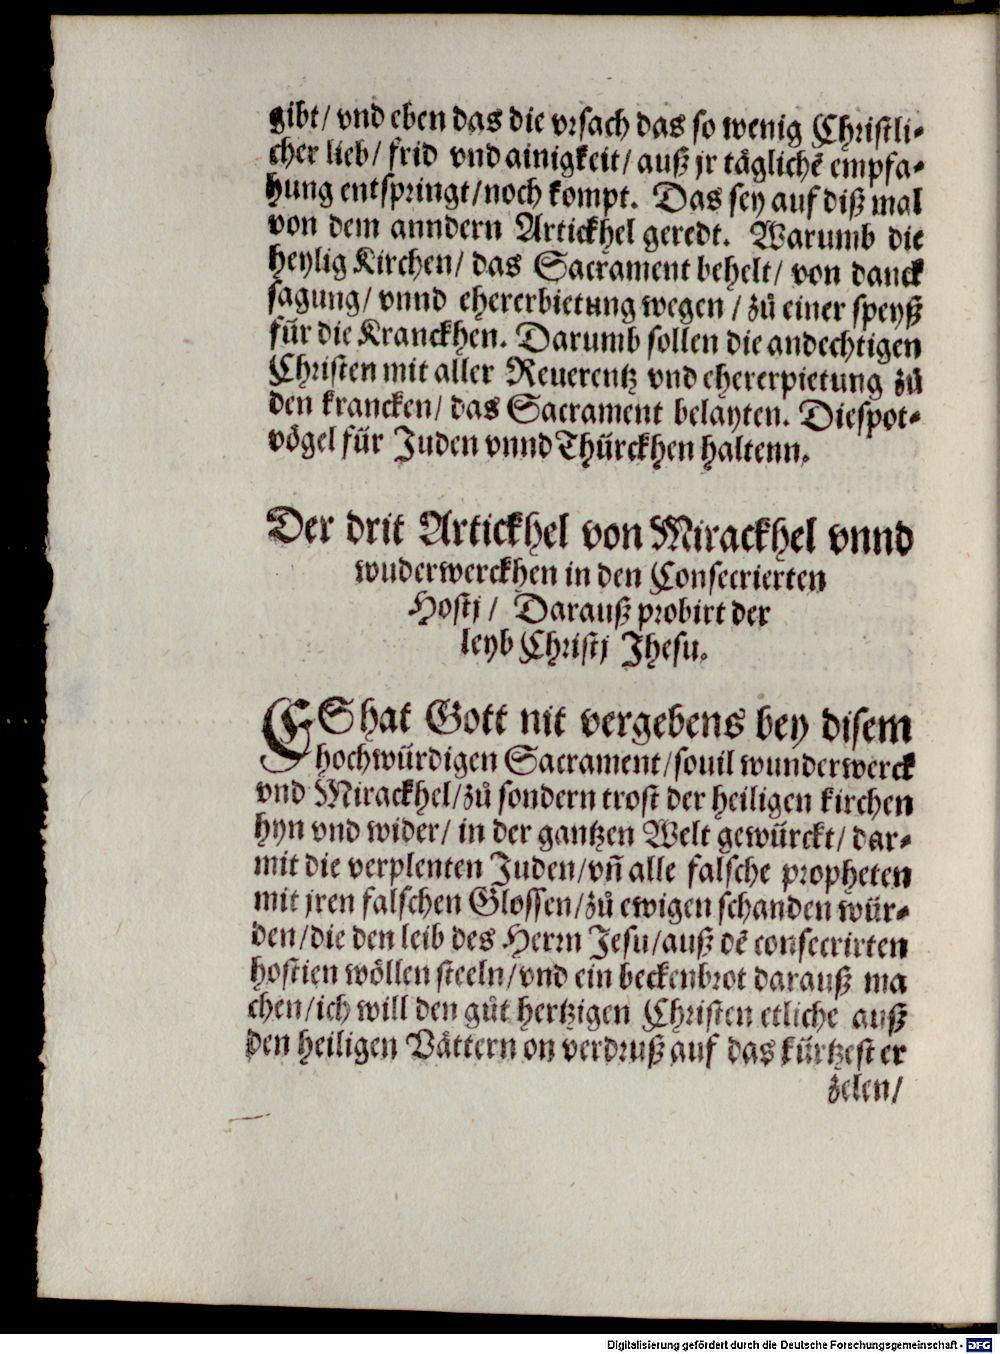 gibt/ vnd eben das die vrsach das so wenig Christli⸗
cher lieb/ frid vnd ainigkeit/ auß jr täglichẽ empfa⸗
hung entspringt/noch kompt. Das sey auf diß mal
von dem anndern Artickhel geredt. Warumb die
heylig Kirchen/ das Sacrament behelt/ von danck
sagung/ vnnd ehererbietung wegen / zů einer speyß
für die Kranckhen. Darumb sollen die andechtigen
Christen mit aller Reuerentz vnd ehererpietung zů
den krancken/ das Sacrament belayten. Diespot⸗
vögel für Juden vnnd Thürckhen haltenn.
Der drit Artickhel von Mirackhel vnnd
wuderwerckhen in den Consecrierten
Hostj / Darauß probirt der
leyb Christj Jhesu.
ES hat Gott nit vergebens bey disem
hochwürdigen Sacrament/souil wunderwerck
vnd Mirackhel/zů sondern trost der heiligen kirchen
hyn vnd wider/ in der gantzen Welt gewürckt/ dar⸗
mit die verplenten Juden/vñ alle falsche propheten
mit jren falschen Glossen/zů ewigen schanden wür⸗
den/die den leib des Herrn Jesu/auß dẽ consecrirten
hostien wöllen steeln/vnd ein beckenbrot darauß ma
chen/ich will den gůt hertzigen Christen etliche auß
den heiligen Vättern on verdruß auf das kürtzest er
zelen/
Digitalisierung gefördert durch die Deutsche Forschungsgemeinschaft - DFG